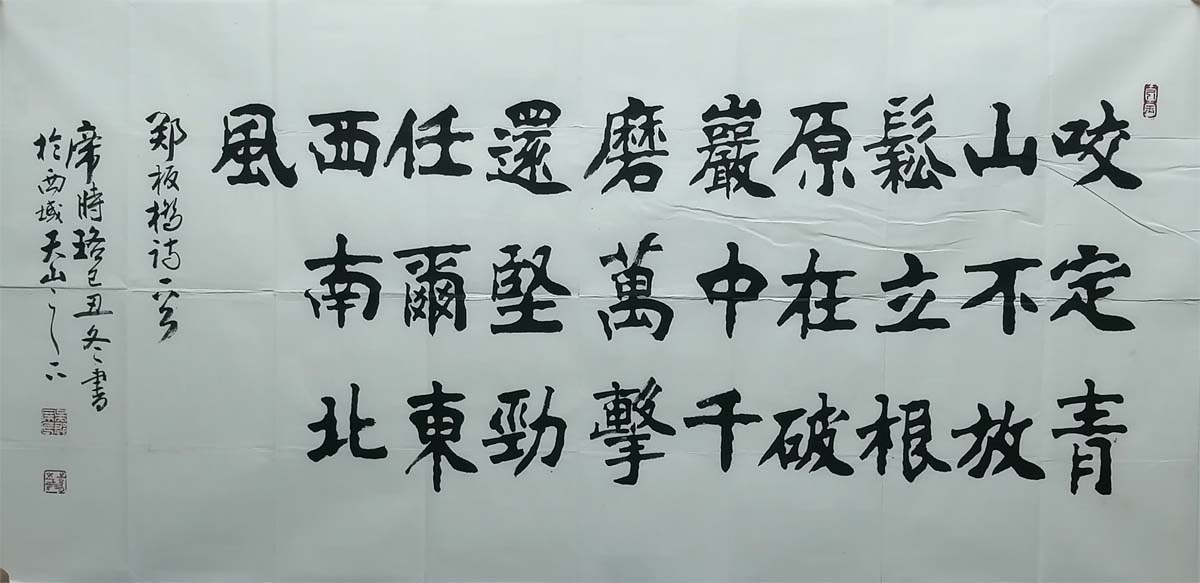 咬定青
山不放
鬆立根
原在破
巖中千
磨萬擊
還堅勁
任爾東
西南北
風
郑板橋诗一首
席時珞己丑冬書
於西域天山之下